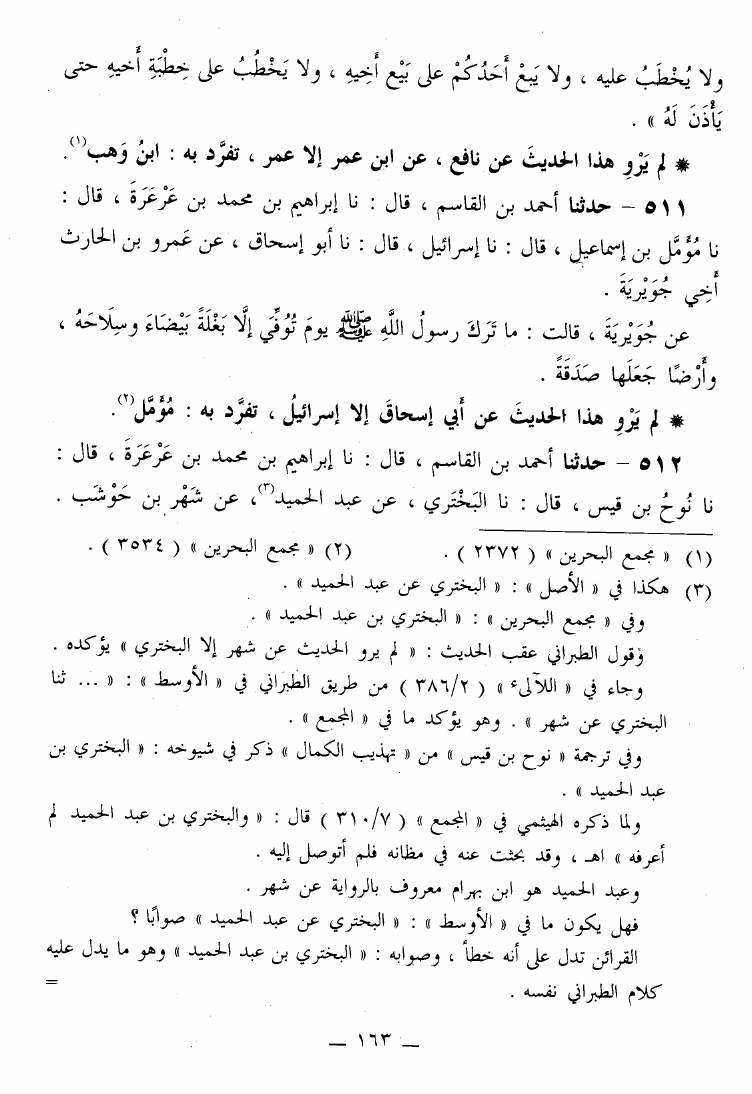 ولا يُخْطَبُ عليه ، ولا يَبعْ أَحَدُكُمْ على بَيْع أَخِيهِ ، ولا يَخْطُبُ على خِطْبَةِ أَخيهِ حتى
يَأْذَنَ لَهُ » .
* لم يَرْوِ هذا الحديثَ عن نافع ، عن ابن عمر إلا عمر ، تفرَّد به : ابنُ وَهب(١).
٥١١ – حدثنا أحمد بن القاسم ، قال : نا إبراهيم بن محمد بن عَرْعَرَةَ ، قال :
نا مُؤَمَّل بن إسماعيل ، قال : نا إسرائيل ، قال : نا أبو إسحاق ، عن عَمرو بن الحارث
أَخِي جُوَيْرِيَةَ .
عن جُوَيْرِيَةَ ، قالت : ما تَرَكَ رسولُ اللَّهِ ﷺ يومَ تُوُفِّيَ إلَّا بَغْلَةً بَيْضَاءَ وسِلَاحَهُ ،
وأَرْضًا جَعَلَها صَدَقَةً .
* لم يَرْوِ هذا الحديثَ عن أبي إسحاقَ إلا إسرائيلُ ، تفرَّد به : مُؤَمَّل(٢).
٥١٢ – حدثنا أحمد بن القاسم ، قال : نا إبراهيم بن محمد بن عَرْعَرةَ ، قال :
نا نُوحُ بن قيس ، قال : نا البَخْتَري ، عن عبد الحميد(٣)، عن شَهْر بن حَوْشَب .
(١) « مجمع البحرين » ( ٢٣٧٢ ) . (٢) « مجمع البحرين » ( ٣٥٣٤ ) .
(٣) هكذا في « الأصل » : « البختري عن عبد الحميد » .
وفي « مجمع البحرين » : « البختري بن عبد الحميد » .
وقول الطبراني عقب الحديث : « لم يرو الحديث عن شهر إلا البختري » يؤكده .
وجاء في « اللآلىء » ( ٣٨٦/٢ ) من طريق الطبراني في « الأوسط » : « ... ثنا
البختري عن شهر » . وهو يؤكد ما في « المجمع » .
وفي ترجمة « نوح بن قيس » من « تهذيب الكمال » ذكر في شيوخه : « البختري بن
عبد الحميد » .
ولما ذكره الهيثمي في « المجمع » ( ٣١٠/٧ ) قال : « والبختري بن عبد الحميد لم
أعرفه » اهـ ، وقد بحثت عنه في مظانه فلم أتوصل إليه .
وعبد الحميد هو ابن بهرام معروف بالرواية عن شهر .
فهل يكون ما في « الأوسط » : « البختري عن عبد الحميد » صوابًا ؟
القرائن تدل على أنه خطأ ، وصوابه : « البختري بن عبد الحميد » وهو ما يدل عليه
كلام الطبراني نفسه .
=
– ١٦٣ –